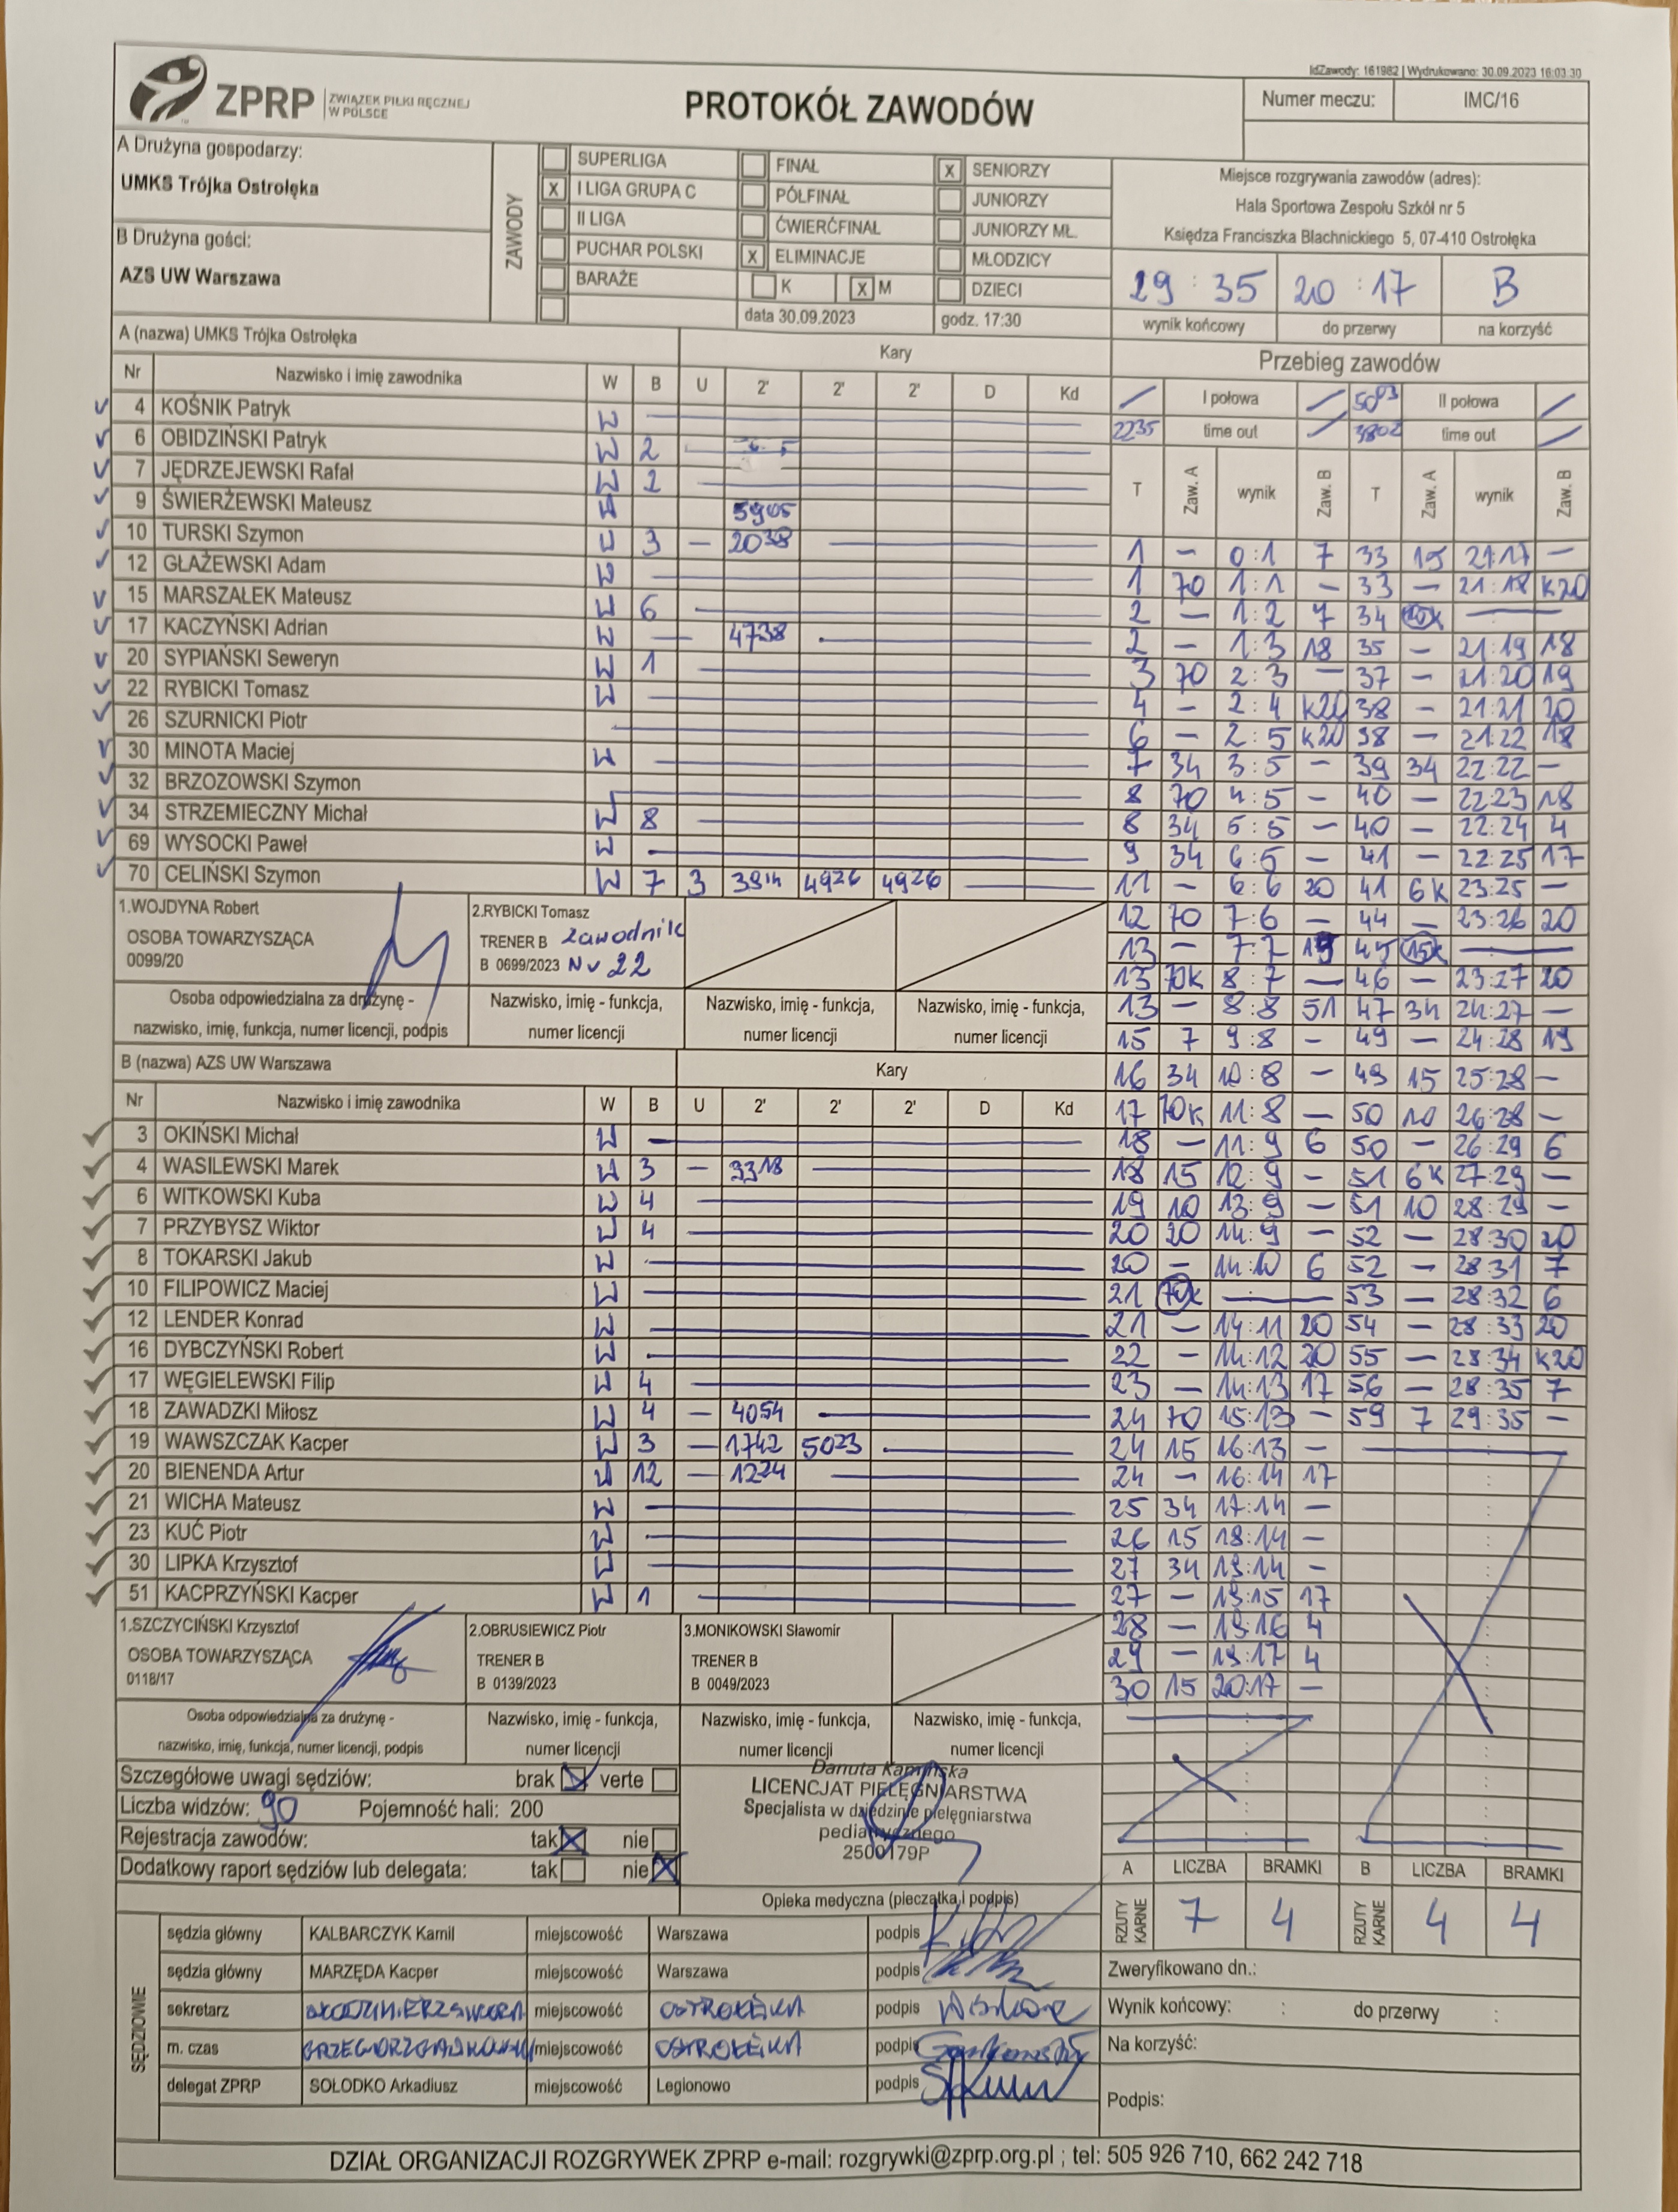 IdZawody: 161982 | Wydrukowano: 30.09.2023 16:03:30
ZPRP ZWIĄZEK PIŁKI RĘCZNEJ W POLSCE
PROTOKÓŁ ZAWODÓW
Numer meczu: IMC/16
A Drużyna gospodarzy:
UMKS Trójka Ostrołęka
B Drużyna gości:
AZS UW Warszawa
ZAWODY
SUPERLIGA
X I LIGA GRUPA C
II LIGA
PUCHAR POLSKI
BARAŻE
FINAŁ
PÓŁFINAŁ
ĆWIERĆFINAŁ
X ELIMINACJE
K X M
data 30.09.2023
X SENIORZY
JUNIORZY
JUNIORZY MŁ.
MŁODZICY
DZIECI
godz. 17:30
Miejsce rozgrywania zawodów (adres):
Hala Sportowa Zespołu Szkół nr 5
Księdza Franciszka Blachnickiego 5, 07-410 Ostrołęka
29 : 35 20 : 17 B
wynik końcowy do przerwy na korzyść
A (nazwa) UMKS Trójka Ostrołęka Kary
Nr Nazwisko i imię zawodnika W B U 2' 2' 2' D Kd
4 KOŚNIK Patryk W
6 OBIDZIŃSKI Patryk W 2
7 JĘDRZEJEWSKI Rafał W 2
9 ŚWIERŻEWSKI Mateusz W 5905
10 TURSKI Szymon W 3 - 2038
12 GŁAŻEWSKI Adam W
15 MARSZAŁEK Mateusz W 6
17 KACZYŃSKI Adrian W 4738
20 SYPIAŃSKI Seweryn W 1
22 RYBICKI Tomasz W
26 SZURNICKI Piotr
30 MINOTA Maciej W
32 BRZOZOWSKI Szymon
34 STRZEMIECZNY Michał W 8
69 WYSOCKI Paweł W
70 CELIŃSKI Szymon W 7 3 3814 4926 4926
1.WOJDYNA Robert
OSOBA TOWARZYSZĄCA
0099/20
2.RYBICKI Tomasz
TRENER B zawodnik
B 0699/2023 Nr 22
Osoba odpowiedzialna za drużynę -
nazwisko, imię, funkcja, numer licencji, podpis
Nazwisko, imię - funkcja,
numer licencji
Nazwisko, imię - funkcja,
numer licencji
Nazwisko, imię - funkcja,
numer licencji
B (nazwa) AZS UW Warszawa Kary
Nr Nazwisko i imię zawodnika W B U 2' 2' 2' D Kd
3 OKIŃSKI Michał W
4 WASILEWSKI Marek W 3 - 3318
6 WITKOWSKI Kuba W 4
7 PRZYBYSZ Wiktor W 4
8 TOKARSKI Jakub W
10 FILIPOWICZ Maciej W
12 LENDER Konrad W
16 DYBCZYŃSKI Robert W
17 WĘGIELEWSKI Filip W 4
18 ZAWADZKI Miłosz W 4 - 4054
19 WAWSZCZAK Kacper W 3 - 1742 5023
20 BIENENDA Artur W 12 - 1224
21 WICHA Mateusz W
23 KUĆ Piotr W
30 LIPKA Krzysztof W
51 KACPRZYŃSKI Kacper W 1
1.SZCZYCIŃSKI Krzysztof
OSOBA TOWARZYSZĄCA
0118/17
2.OBRUSIEWICZ Piotr
TRENER B
B 0139/2023
3.MONIKOWSKI Sławomir
TRENER B
B 0049/2023
Osoba odpowiedzialna za drużynę -
nazwisko, imię, funkcja, numer licencji, podpis
Nazwisko, imię - funkcja,
numer licencji
Nazwisko, imię - funkcja,
numer licencji
Nazwisko, imię - funkcja,
numer licencji
Przebieg zawodów
I połowa 5003 II połowa
2235 time out 3802 time out
T Zaw. A wynik Zaw. B T Zaw. A wynik Zaw. B
1 - 0:1 7 33 15 21:17 -
1 70 1:1 - 33 - 21:18 K20
2 - 1:2 7 34 15K
2 - 1:3 18 35 - 21:19 18
3 70 2:3 - 37 - 21:20 19
4 - 2:4 K20 38 - 21:21 20
6 - 2:5 K20 38 - 21:22 18
7 34 3:5 - 39 34 22:22 -
8 70 4:5 - 40 - 22:23 18
8 34 5:5 - 40 - 22:24 4
9 34 6:5 - 41 - 22:25 17
11 - 6:6 20 41 6K 23:25 -
12 70 7:6 - 44 - 23:26 20
13 - 7:7 19 45 15K
13 70K 8:7 - 46 - 23:27 20
13 - 8:8 51 47 34 24:27 -
15 7 9:8 - 49 - 24:28 19
16 34 10:8 - 49 15 25:28 -
17 70K 11:8 - 50 10 26:28 -
18 - 11:9 6 50 - 26:29 6
18 15 12:9 - 51 6K 27:29 -
19 10 13:9 - 51 10 28:29 -
20 20 14:9 - 52 - 28:30 20
20 - 14:10 6 52 - 28:31 7
21 70K 53 - 28:32 6
21 - 14:11 20 54 - 28:33 20
22 - 14:12 20 55 - 28:34 K20
23 - 14:13 17 56 - 28:35 7
24 70 15:13 - 59 7 29:35 -
24 15 16:13 -
24 - 16:14 17
25 34 17:14 -
26 15 18:14 -
27 34 19:14 -
27 - 19:15 17
28 - 19:16 4
29 - 19:17 4
30 15 20:17 -
Szczegółowe uwagi sędziów: brak verte
Liczba widzów: 90 Pojemność hali: 200
Rejestracja zawodów: tak nie
Dodatkowy raport sędziów lub delegata: tak nie
Danuta Kamińska
LICENCJAT PIELĘGNIARSTWA
Specjalista w dziedzinie pielęgniarstwa
pediatrycznego
2500179P
Opieka medyczna (pieczątka i podpis)
A LICZBA BRAMKI B LICZBA BRAMKI
RZUTY KARNE 7 4 RZUTY KARNE 4 4
SĘDZIOWIE
sędzia główny KALBARCZYK Kamil miejscowość Warszawa podpis
sędzia główny MARZĘDA Kacper miejscowość Warszawa podpis
sekretarz miejscowość OSTROŁĘKA podpis
m. czas miejscowość OSTROŁĘKA podpis
delegat ZPRP SOŁODKO Arkadiusz miejscowość Legionowo podpis
Zweryfikowano dn.:
Wynik końcowy: : do przerwy :
Na korzyść:
Podpis:
DZIAŁ ORGANIZACJI ROZGRYWEK ZPRP e-mail: rozgrywki@zprp.org.pl ; tel: 505 926 710, 662 242 718